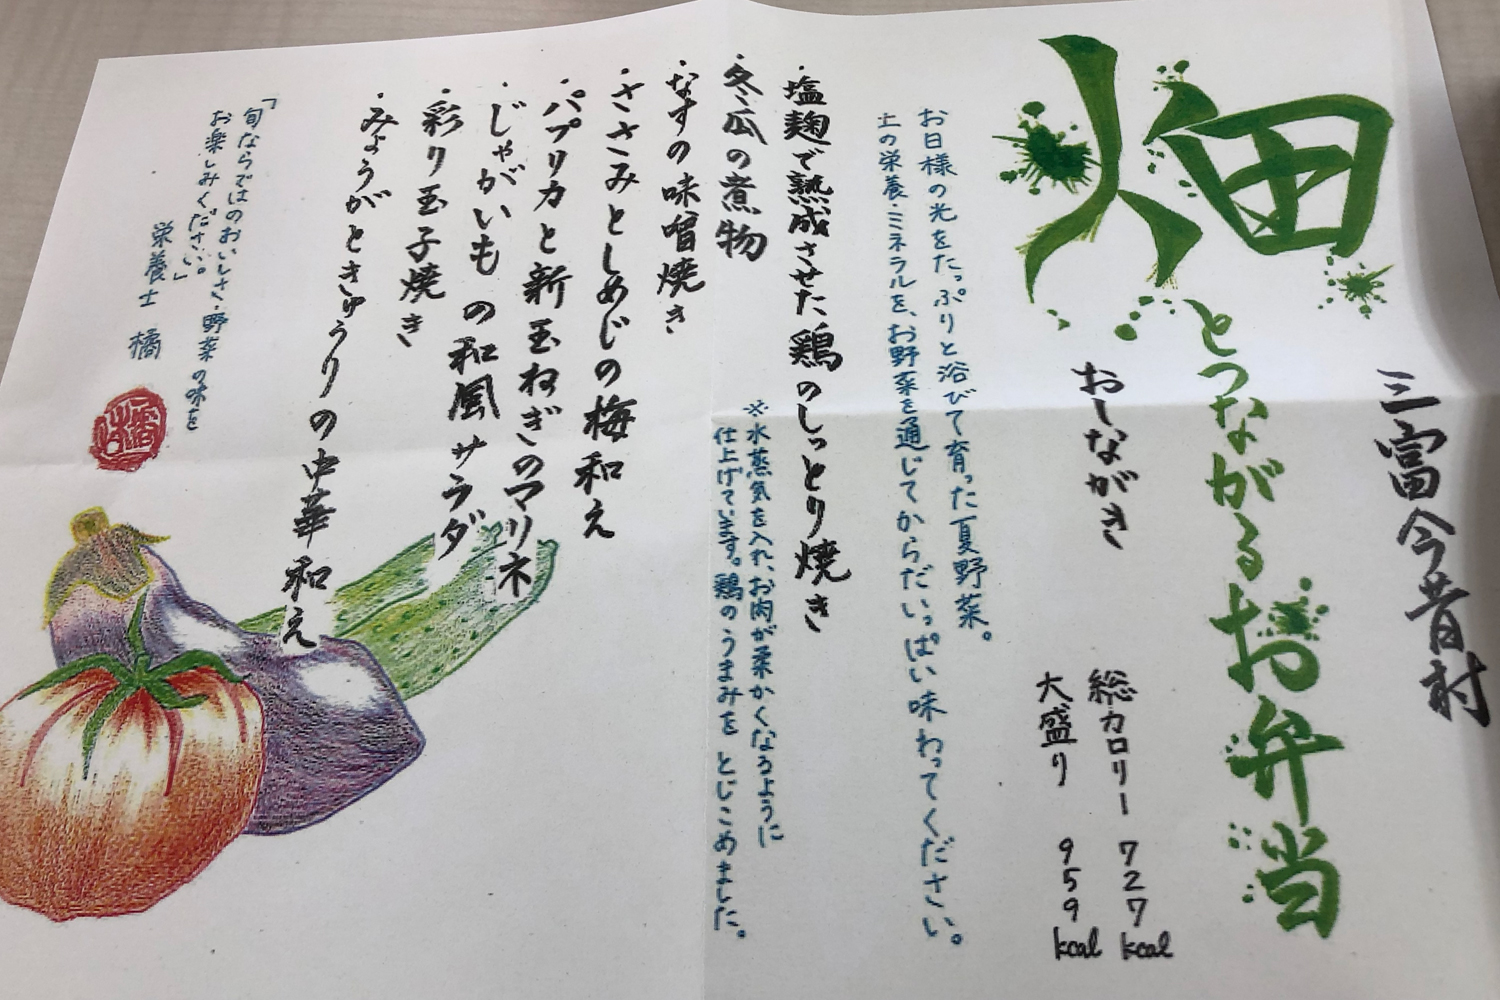 三富今昔村
畑とつながるお弁当
おしながき
総カロリー 727kcal
大盛り 959kcal
お日様の光をたっぷりと浴びて育った夏野菜。
土の栄養・ミネラルを、お野菜を通じてからだいっぱい味わってください。
・塩麹で熟成させた鶏のしっとり焼き
※水蒸気を入れ、お肉が柔かくなるように
仕上げています。鶏のうまみをとじこめました。
・冬瓜の煮物
・なすの味噌焼き
・ささみとしめじの梅和え
・パプリカと新玉ねぎのマリネ
・じゃがいもの和風サラダ
・彩り玉子焼き
・みょうがときゅうりの中華和え
「旬ならではのおいしさ・野菜の味を
お楽しみください。」
栄養士 橘